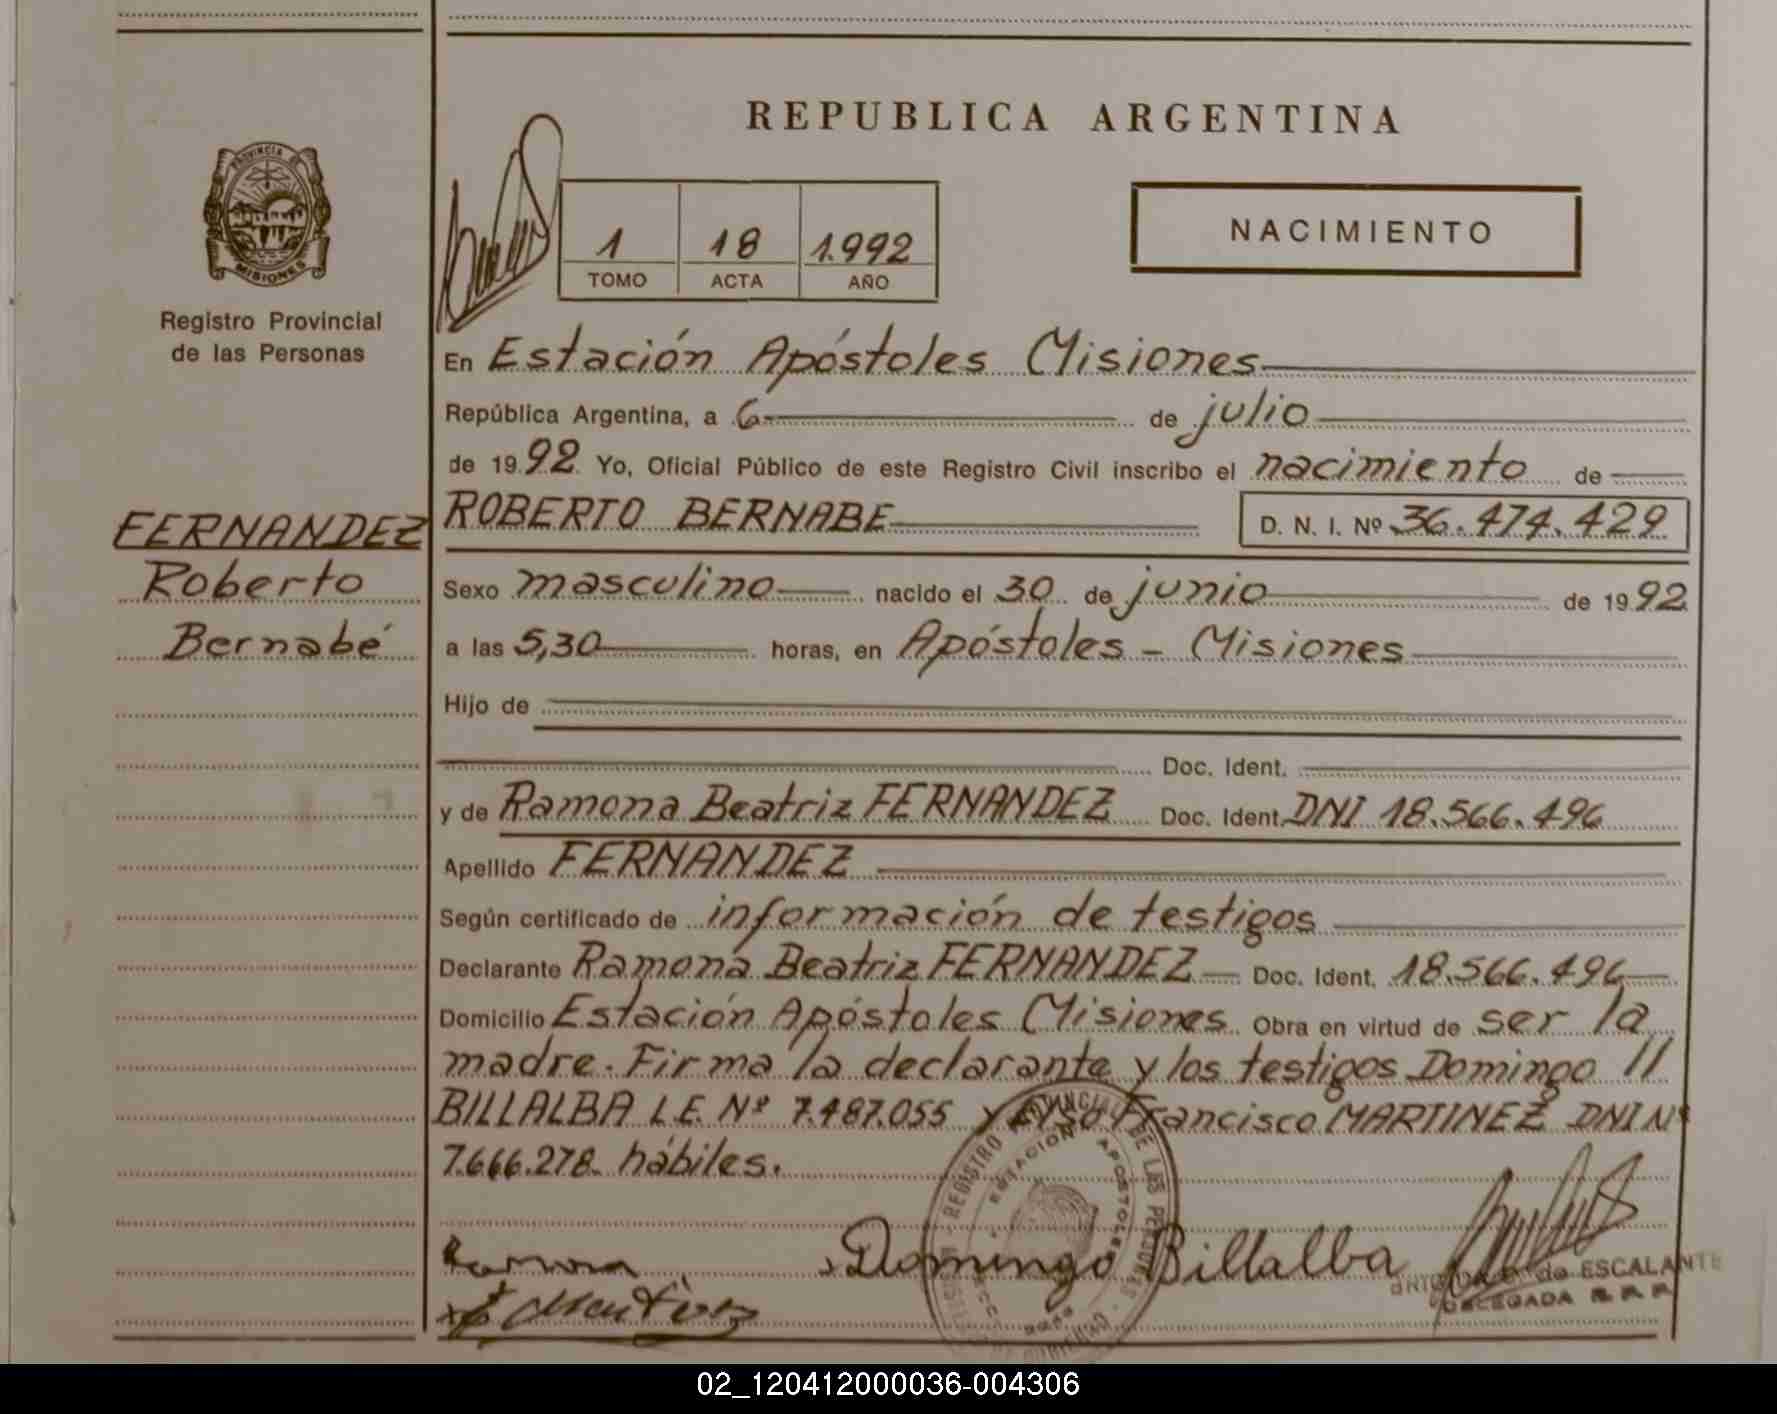 REPUBLICA ARGENTINA
PROVINCIA DE
MISIONES
Registro Provincial
de las Personas
1 18 1.992
TOMO ACTA AÑO
NACIMIENTO
FERNANDEZ
Roberto
Bernabé
En Estación Apóstoles Misiones
República Argentina, a 6 de julio
de 1992 Yo, Oficial Público de este Registro Civil inscribo el nacimiento de
ROBERTO BERNABE D. N. I. Nº 36.474.429
Sexo masculino nacido el 30 de junio de 1992
a las 5,30 horas, en Apóstoles - Misiones
Hijo de
Doc. Ident.
y de Ramona Beatriz FERNANDEZ Doc. Ident. DNI 18.566.496
Apellido FERNANDEZ
Según certificado de información de testigos
Declarante Ramona Beatriz FERNANDEZ Doc. Ident. 18.566.496
Domicilio Estación Apóstoles Misiones Obra en virtud de ser la
madre. Firma la declarante y los testigos Domingo
BILLALBA L.E. Nº 7.487.055 y Francisco MARTINEZ DNI Nº
7.666.278 hábiles.
REGISTRO PROVINCIAL DE LAS PERSONAS
ESTACION APOSTOLES
Ramona Domingo Billalba
de ESCALANTE
DELEGADA R.P.P.
02_120412000036-004306